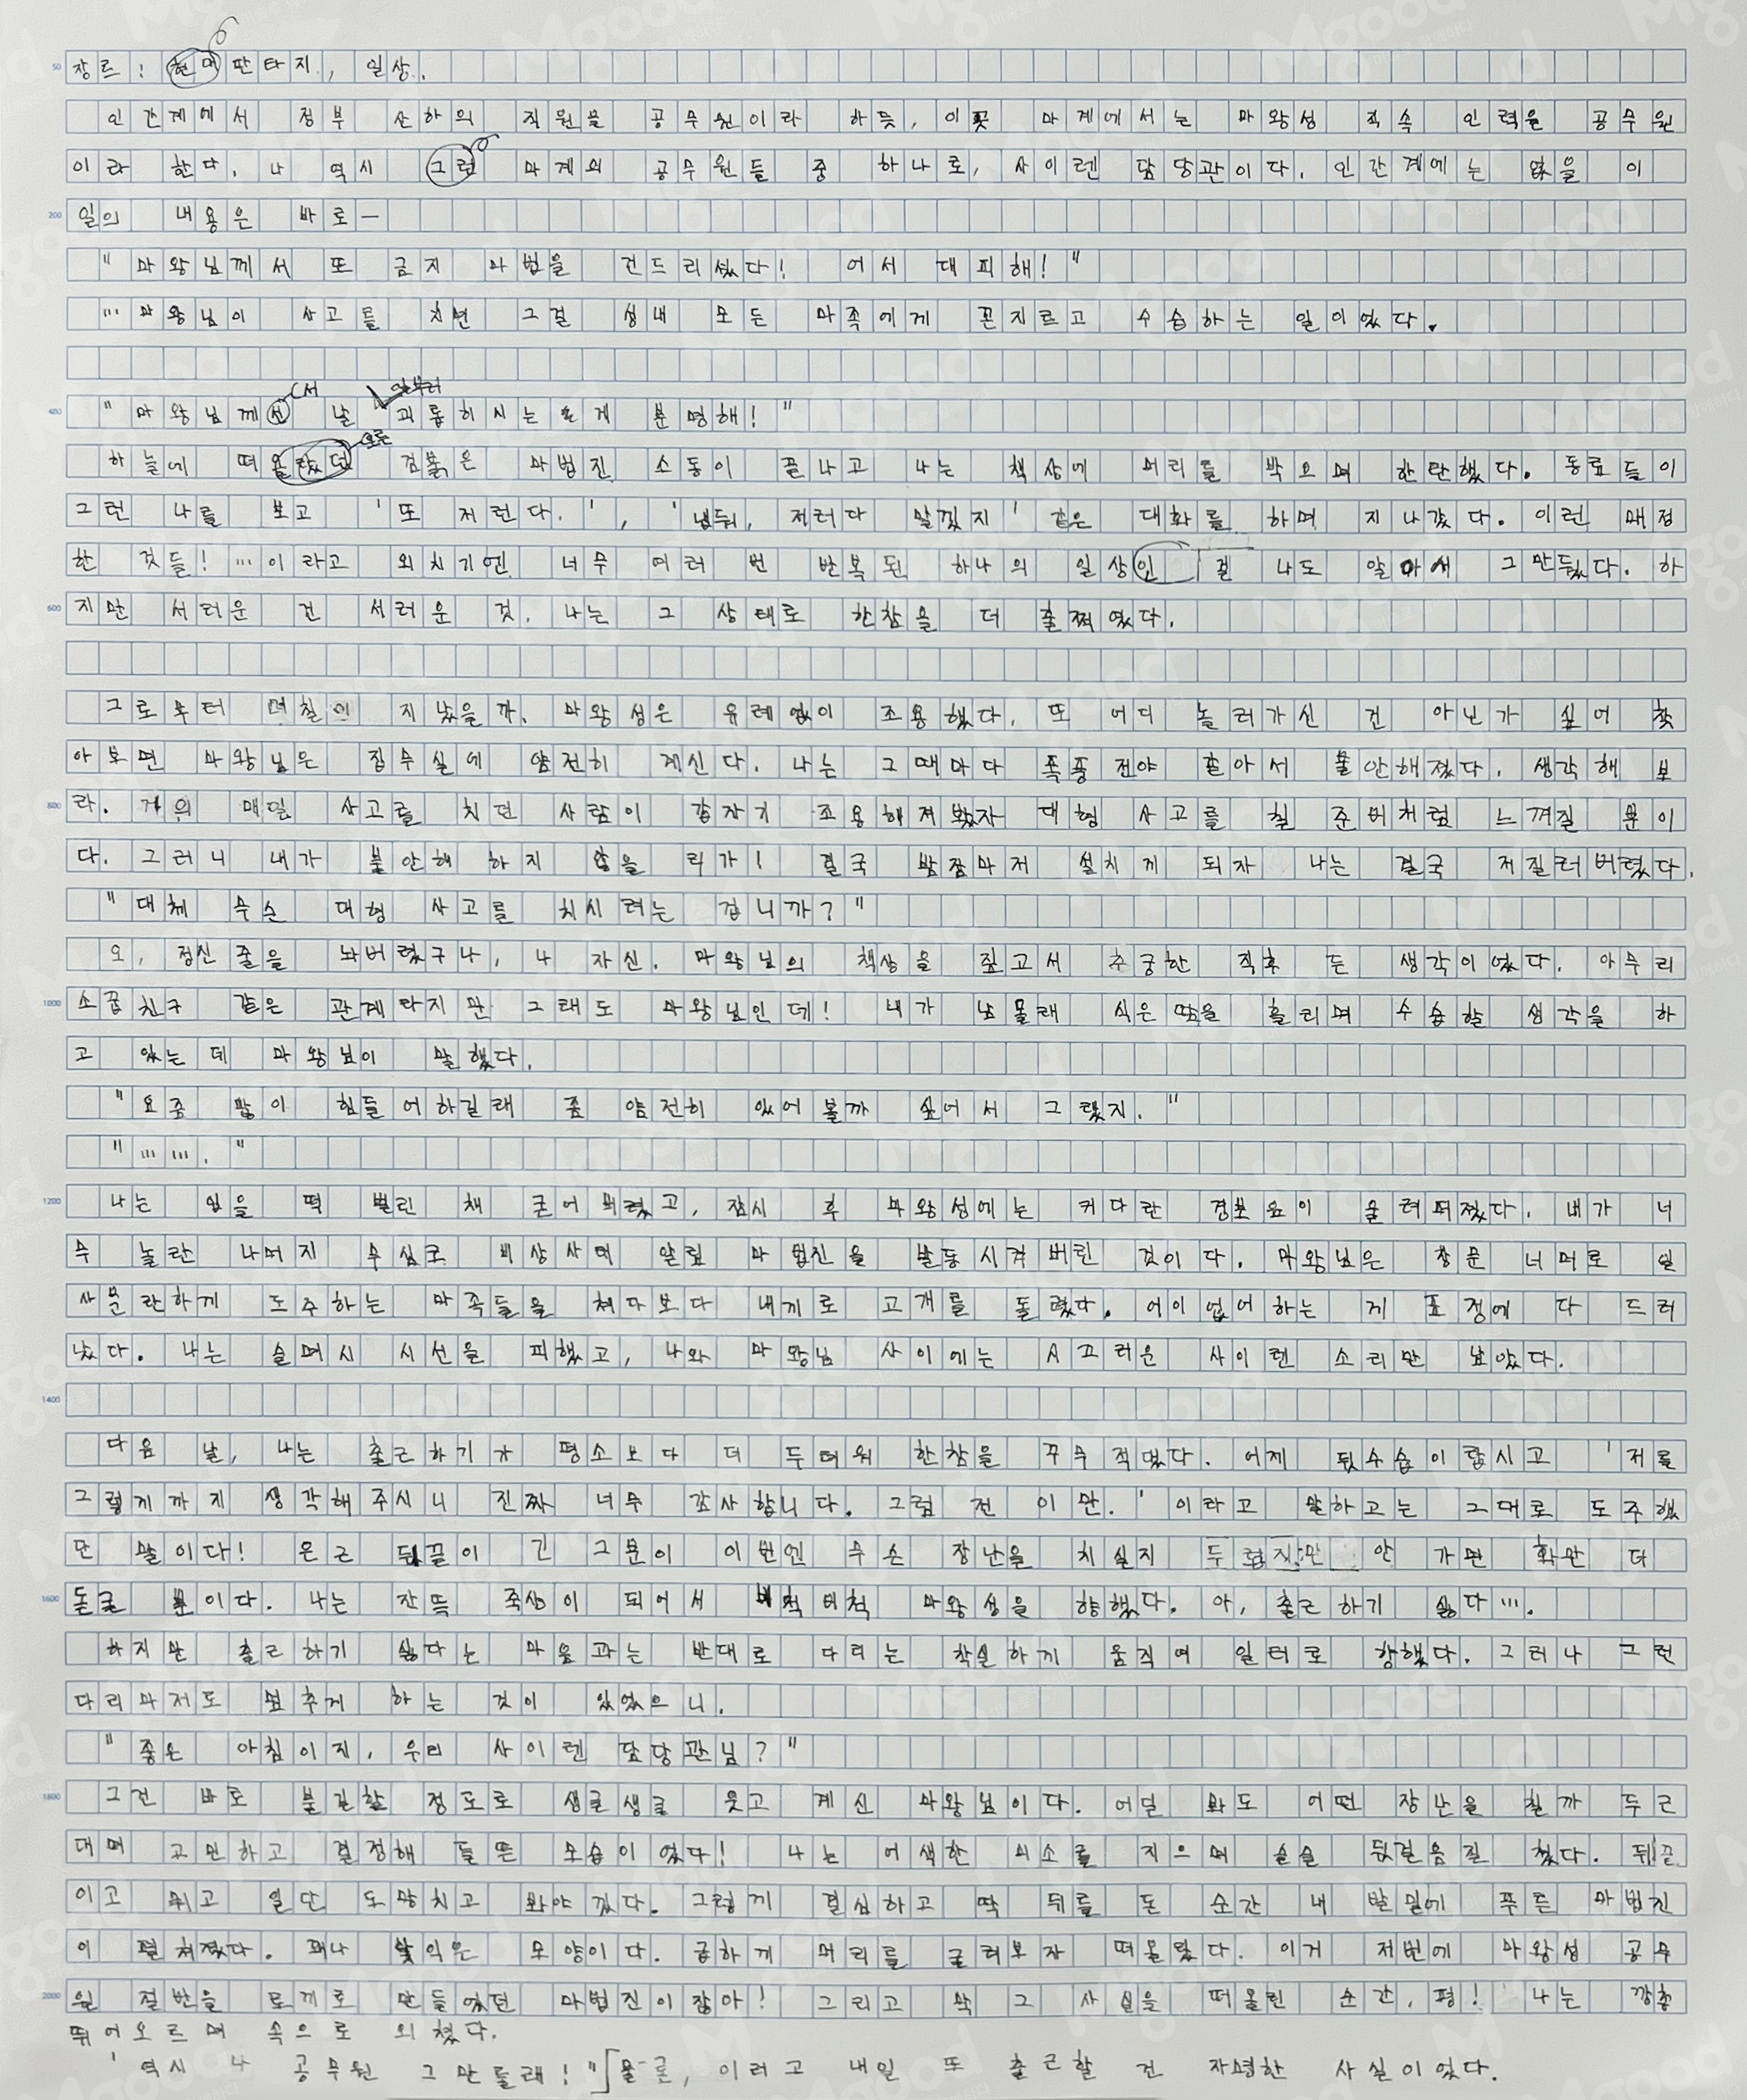 장르 : 현대 판타지, 일상.
인간계에서 정부 산하의 직원을 공무원이라 하듯, 이곳 마계에서는 마왕성 직속 인력을 공무원
이라 한다. 나 역시 그런 마계의 공무원들 중 하나로, 사이렌 담당관이다. 인간계에는 없을 이
일의 내용은 바로—
"마왕님께서 또 금지 마법을 건드리셨다! 어서 대피해!"
…마왕님이 사고를 치면 그걸 성내 모든 마족에게 꼰지르고 수습하는 일이었다.
서 일부러
"마왕님께선 날 괴롭히시는 게 분명해!"
오른
하늘에 떠올랐던 검붉은 마법진 소동이 끝나고 나는 책상에 머리를 박으며 한탄했다. 동료들이
그런 나를 보고 '또 저런다.', '냅둬, 저러다 말겠지' 같은 대화를 하며 지나갔다. 이런 매정
한 것들! …이라고 외치기엔 너무 여러 번 반복된 하나의 일상인 걸 나도 알아서 그만뒀다. 하
지만 서러운 건 서러운 것. 나는 그 상태로 한참을 더 훌쩍였다.
그로부터 며칠이 지났을까. 마왕성은 유례없이 조용했다. 또 어디 놀러가신 건 아닌가 싶어 찾
아보면 마왕님은 집무실에 얌전히 계신다. 나는 그때마다 폭풍전야 같아서 불안해졌다. 생각해 보
라. 거의 매일 사고를 치던 사람이 갑자기 조용해져봤자 대형 사고를 칠 준비처럼 느껴질 뿐이
다. 그러니 내가 불안해 하지 않을 리가! 결국 밤잠마저 설치게 되자 나는 결국 저질러버렸다.
"대체 무슨 대형 사고를 치시려는 겁니까?"
오, 정신 줄을 놔버렸구나, 나 자신. 마왕님의 책상을 짚고서 추궁한 직후 든 생각이었다. 아무리
소꿉친구 같은 관계라지만 그래도 마왕님인데! 내가 남몰래 식은땀을 흘리며 수습할 생각을 하
고 있는데 마왕님이 말했다.
"요즘 많이 힘들어하길래 좀 얌전히 있어볼까 싶어서 그랬지."
"……."
나는 입을 떡 벌린 채 굳어 버렸고, 잠시 후 마왕성에는 커다란 경보음이 울려퍼졌다. 내가 너
무 놀란 나머지 무심코 비상사태 알림 마법진을 발동시켜 버린 것이다. 마왕님은 창문 너머로 일
사분란하게 도주하는 마족들을 쳐다보다 내게로 고개를 돌렸다. 어이없어하는 게 표정에 다 드러
났다. 나는 슬며시 시선을 피했고, 나와 마왕님 사이에는 시끄러운 사이렌 소리만 남았다.
다음 날, 나는 출근하기가 평소보다 더 두려워 한참을 꾸무적댔다. 어제 뒷수습이랍시고 '저를
그렇게까지 생각해주시니 진짜 너무 감사합니다. 그럼 전 이만.'이라고 말하고는 그대로 도주했
단 말이다! 은근 뒤끝이 긴 그분이 이번엔 무슨 장난을 치실지 두렵지만 안 가면 화만 더
돋굴 뿐이다. 나는 잔뜩 죽상이 되어서 버척버척 마왕성을 향했다. 아, 출근하기 싫다….
하지만 출근하기 싫다는 마음과는 반대로 다리는 착실하게 움직여 일터로 향했다. 그러나 그런
다리마저도 멈추게 하는 것이 있었으니.
"좋은 아침이지, 우리 사이렌 담당관님?"
그건 바로 불길할 정도로 생글생글 웃고 계신 마왕님이다. 어딜 봐도 어떤 장난을 칠까 두근
대며 고민하고 결정해 들뜬 모습이었다! 나는 어색한 미소를 지으며 슬슬 뒷걸음질 쳤다. 뒤끝
이고 뭐고 일단 도망치고 봐야겠다. 그렇게 결심하고 딱 뒤를 돈 순간 내 발밑에 푸른 마법진
이 펼쳐졌다. 꽤나 낯익은 모양이다. 급하게 머리를 굴려보자 떠올랐다. 이거 저번에 마왕성 공무
원 절반을 토끼로 만들었던 마법진이잖아! 그리고 딱 그 사실을 떠올린 순간, 펑! 나는 깡총
뛰어오르며 속으로 외쳤다.
'역시 나 공무원 그만둘래!" 물론, 이러고 내일 또 출근할 건 자명한 사실이었다.